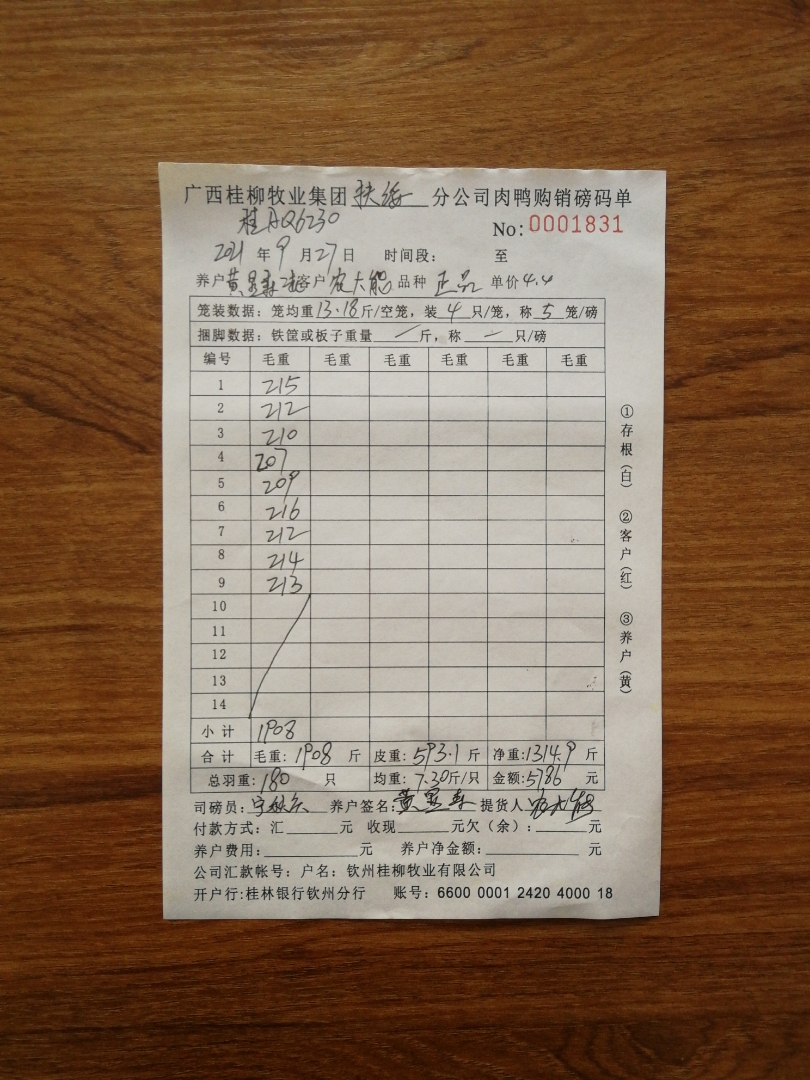 广西桂柳牧业集团 扶绥 分公司肉鸭购销磅码单
桂AQ6230
No: 0001831
2021 年 9 月 27 日 时间段： 至
养户 黄 客户 农大船 品种 正品 单价 4.4
笼装数据：笼均重 13.18 斤/空笼，装 4 只/笼，称 5 笼/磅
捆脚数据：铁筐或板子重量 / 斤，称 — 只/磅
编号 毛重 毛重 毛重 毛重 毛重 毛重
1 215
2 212
3 210
4 207
5 209
6 216
7 212
8 214
9 213
10
11
12
13
14
小计 1908
合计 毛重：1908 斤 皮重：593.1 斤 净重：1314.9 斤
总羽重：180 只 均重：7.30 斤/只 金额：5786 元
司磅员： 养户签名：黄 提货人
付款方式：汇______元 收现______元欠（余）：______元
养户费用：__________元 养户净金额：__________元
公司汇款帐号：户名：钦州桂柳牧业有限公司
开户行：桂林银行钦州分行 账号：6600 0001 2420 4000 18
①存根（白） ②客户（红） ③养户（黄）